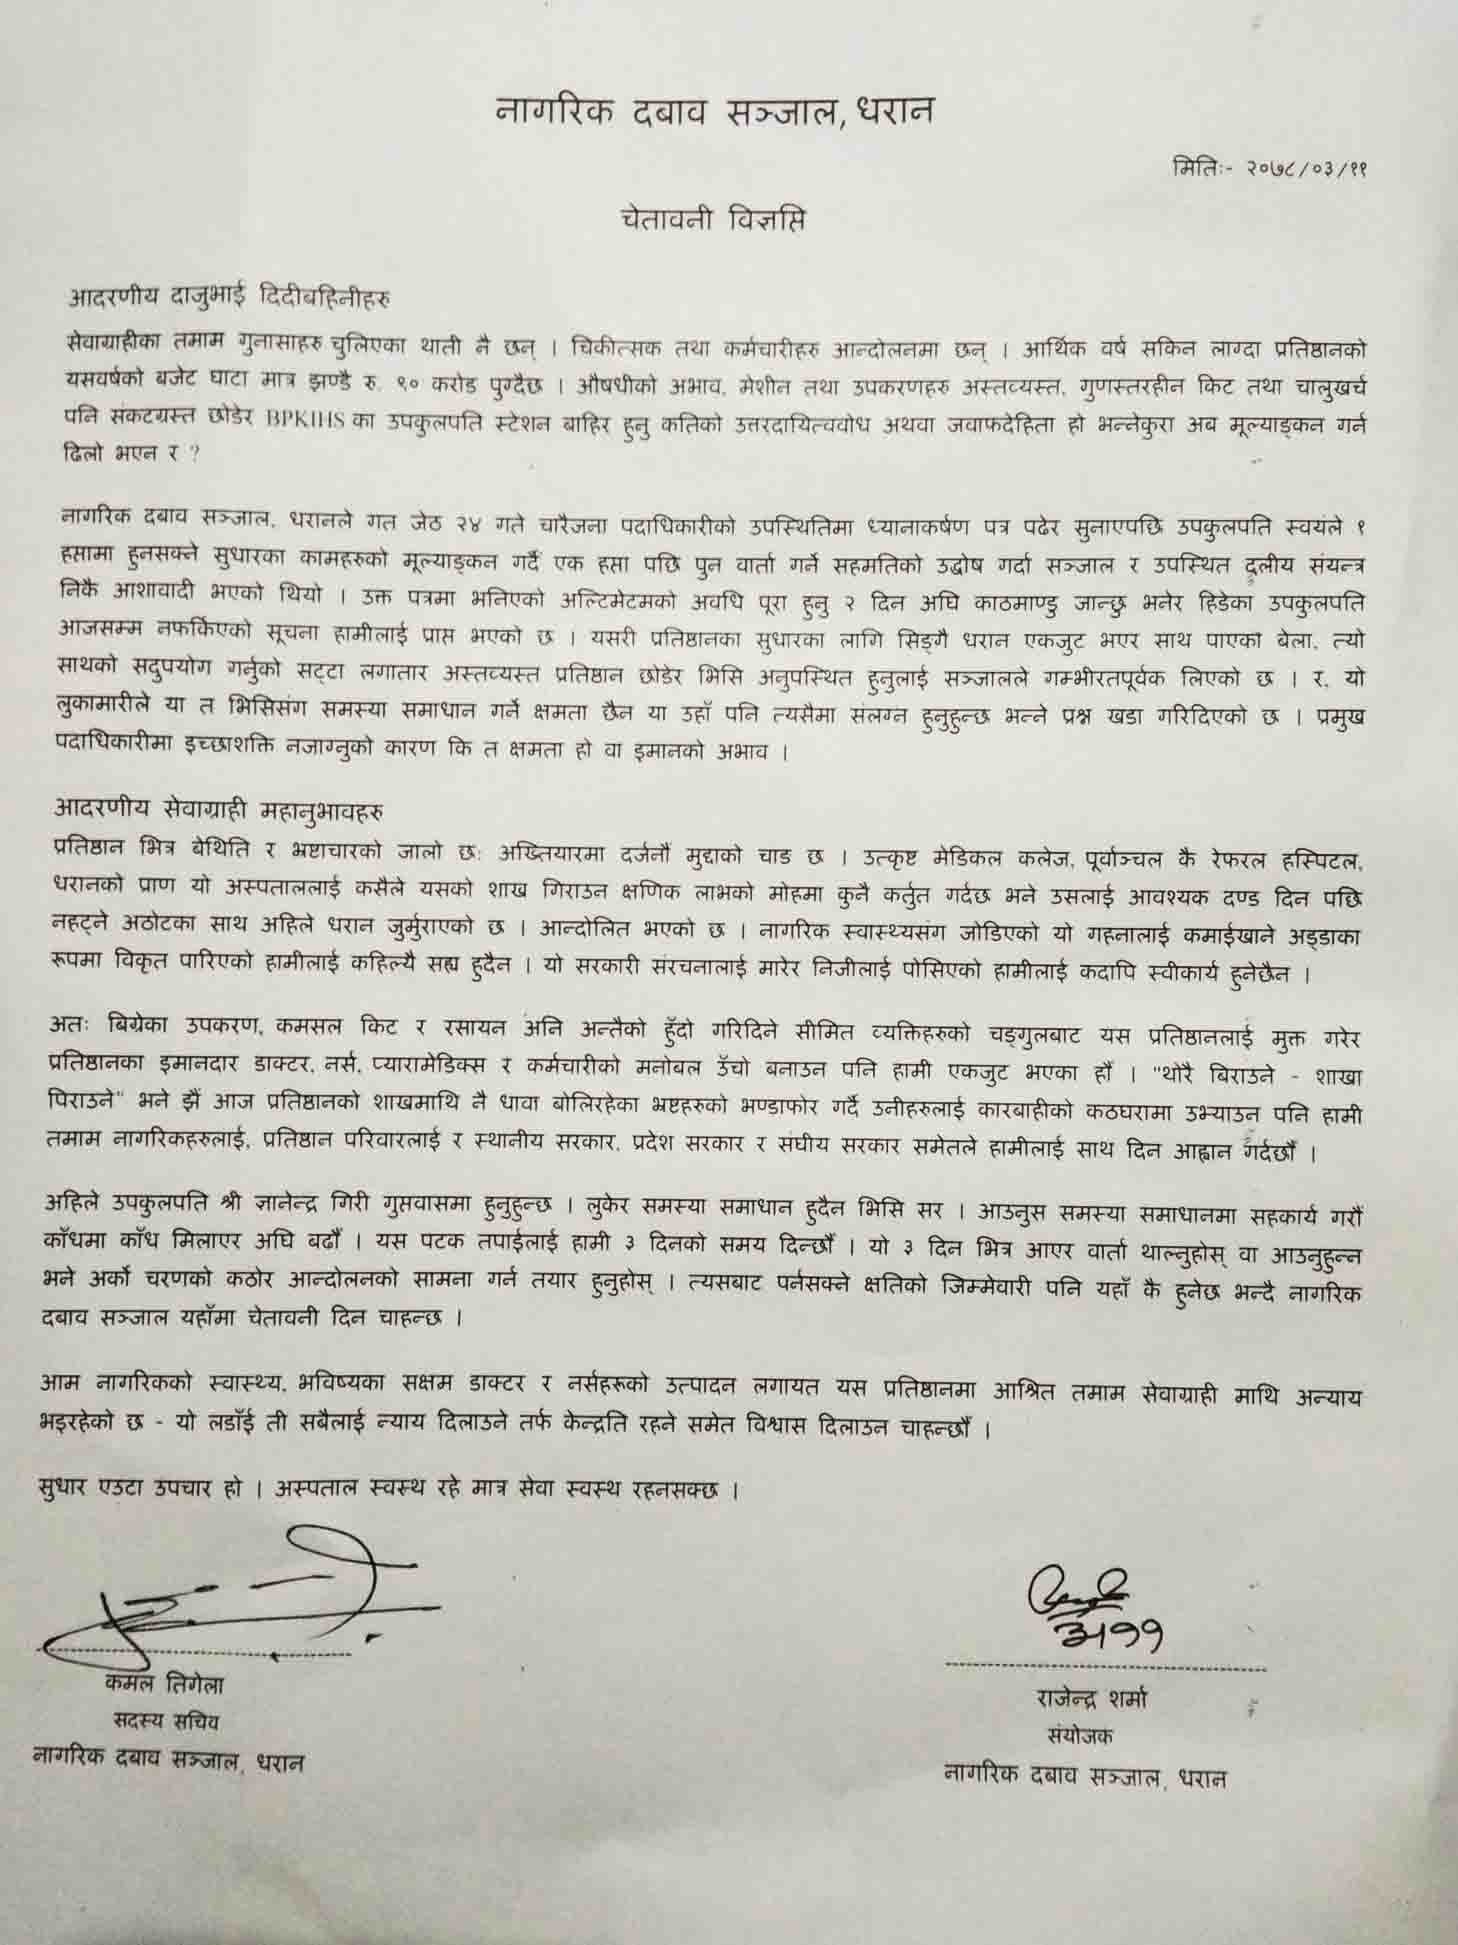 नागरिक दबाव सञ्जाल, धरान
मितिः- २०७८/०३/११
चेतावनी विज्ञप्ति
आदरणीय दाजुभाई दिदीबहिनीहरु
सेवाग्राहीका तमाम गुनासाहरु चुलिएका थाती नै छन् । चिकीत्सक तथा कर्मचारीहरु आन्दोलनमा छन् । आर्थिक वर्ष सकिन लाग्दा प्रतिष्ठानको
यसवर्षको बजेट घाटा मात्र झण्डै रु. ९० करोड पुग्दैछ । औषधीको अभाव, मेशीन तथा उपकरणहरु अस्तव्यस्त, गुणस्तरहीन किट तथा चालुखर्च
पनि संकटग्रस्त छोडेर BPKIHS का उपकुलपति स्टेशन बाहिर हुनु कतिको उत्तरदायित्ववोध अथवा जवाफदेहिता हो भन्नेकुरा अब मूल्याङ्कन गर्न
ढिलो भएन र ?
नागरिक दबाव सञ्जाल, धरानले गत जेठ २४ गते चारैजना पदाधिकारीको उपस्थितिमा ध्यानाकर्षण पत्र पढेर सुनाएपछि उपकुलपति स्वयंले १
हप्तामा हुनसक्ने सुधारका कामहरुको मूल्याङ्कन गर्दै एक हप्ता पछि पुन वार्ता गर्ने सहमतिको उद्घोष गर्दा सञ्जाल र उपस्थित दलीय संयन्त्र
निकै आशावादी भएको थियो । उक्त पत्रमा भनिएको अल्टिमेटमको अवधि पूरा हुनु २ दिन अघि काठमाण्डु जान्छु भनेर हिडेका उपकुलपति
आजसम्म नफर्किएको सूचना हामीलाई प्राप्त भएको छ । यसरी प्रतिष्ठानका सुधारका लागि सिङ्गै धरान एकजुट भएर साथ पाएका बेला, त्यो
साथको सदुपयोग गर्नुको सट्टा लगातार अस्तव्यस्त प्रतिष्ठान छोडेर भिसि अनुपस्थित हुनुलाई सञ्जालले गम्भीरतपूर्वक लिएको छ । र, यो
लुकामारीले या त भिसिसंग समस्या समाधान गर्ने क्षमता छैन या उहाँ पनि त्यसैमा संलग्न हुनुहुन्छ भन्ने प्रश्न खडा गरिदिएको छ । प्रमुख
पदाधिकारीमा इच्छाशक्ति नजाग्नुको कारण कि त क्षमता हो वा इमानको अभाव ।
आदरणीय सेवाग्राही महानुभावहरु
प्रतिष्ठान भित्र बेथिति र भ्रष्टाचारको जालो छः अख्तियारमा दर्जनौं मुद्दाको चाङ छ । उत्कृष्ट मेडिकल कलेज, पूर्वाञ्चल कै रेफरल हस्पिटल,
धरानको प्राण यो अस्पताललाई कसैले यसको शाख गिराउन क्षणिक लाभको मोहमा कुनै कर्तुत गर्दछ भने उसलाई आवश्यक दण्ड दिन पछि
नहट्ने अठोटका साथ अहिले धरान जुर्मुराएको छ । आन्दोलित भएको छ । नागरिक स्वास्थ्यसंग जोडिएको यो गहनालाई कमाईखाने अड्डाका
रूपमा विकृत पारिएको हामीलाई कहिल्यै सह्य हुदैन । यो सरकारी संरचनालाई मारेर निजीलाई पोसिएको हामीलाई कदापि स्वीकार्य हुनेछैन ।
अतः बिग्रेका उपकरण, कमसल किट र रसायन अनि अन्तैको हुँदो गरिदिने सीमित व्यक्तिहरुको चङ्गुलबाट यस प्रतिष्ठानलाई मुक्त गरेर
प्रतिष्ठानका इमानदार डाक्टर, नर्स, प्यारामेडिक्स र कर्मचारीको मनोबल उँचो बनाउन पनि हामी एकजुट भएका हौं । "थोरै बिराउने - शाखा
पिराउने" भने झैं आज प्रतिष्ठानको शाखमाथि नै धावा बोलिरहेका भ्रष्टहरुको भण्डाफोर गर्दै उनीहरुलाई कारबाहीको कठघरामा उभ्याउन पनि हामी
तमाम नागरिकहरुलाई, प्रतिष्ठान परिवारलाई र स्थानीय सरकार, प्रदेश सरकार र संघीय सरकार समेतले हामीलाई साथ दिन आह्वान गर्दछौं ।
अहिले उपकुलपति श्री ज्ञानेन्द्र गिरी गुप्तवासमा हुनुहुन्छ । लुकेर समस्या समाधान हुदैन भिसि सर । आउनुस समस्या समाधानमा सहकार्य गरौं
काँधमा काँध मिलाएर अघि बढौं । यस पटक तपाईलाई हामी ३ दिनको समय दिन्छौं । यो ३ दिन भित्र आएर वार्ता थाल्नुहोस् वा आउनुहुन्न
भने अर्को चरणको कठोर आन्दोलनको सामना गर्न तयार हुनुहोस् । त्यसबाट पर्नसक्ने क्षतिको जिम्मेवारी पनि यहाँ कै हुनेछ भन्दै नागरिक
दबाव सञ्जाल यहाँमा चेतावनी दिन चाहन्छ ।
आम नागरिकको स्वास्थ्य, भविष्यका सक्षम डाक्टर र नर्सहरूको उत्पादन लगायत यस प्रतिष्ठानमा आश्रित तमाम सेवाग्राही माथि अन्याय
भइरहेको छ - यो लडाँई ती सबैलाई न्याय दिलाउने तर्फ केन्द्रति रहने समेत विश्वास दिलाउन चाहन्छौं ।
सुधार एउटा उपचार हो । अस्पताल स्वस्थ रहे मात्र सेवा स्वस्थ रहनसक्छ ।
कमल तिगेला
सदस्य सचिव
नागरिक दबाव सञ्जाल, धरान
राजेन्द्र शर्मा
संयोजक
नागरिक दबाव सञ्जाल, धरान